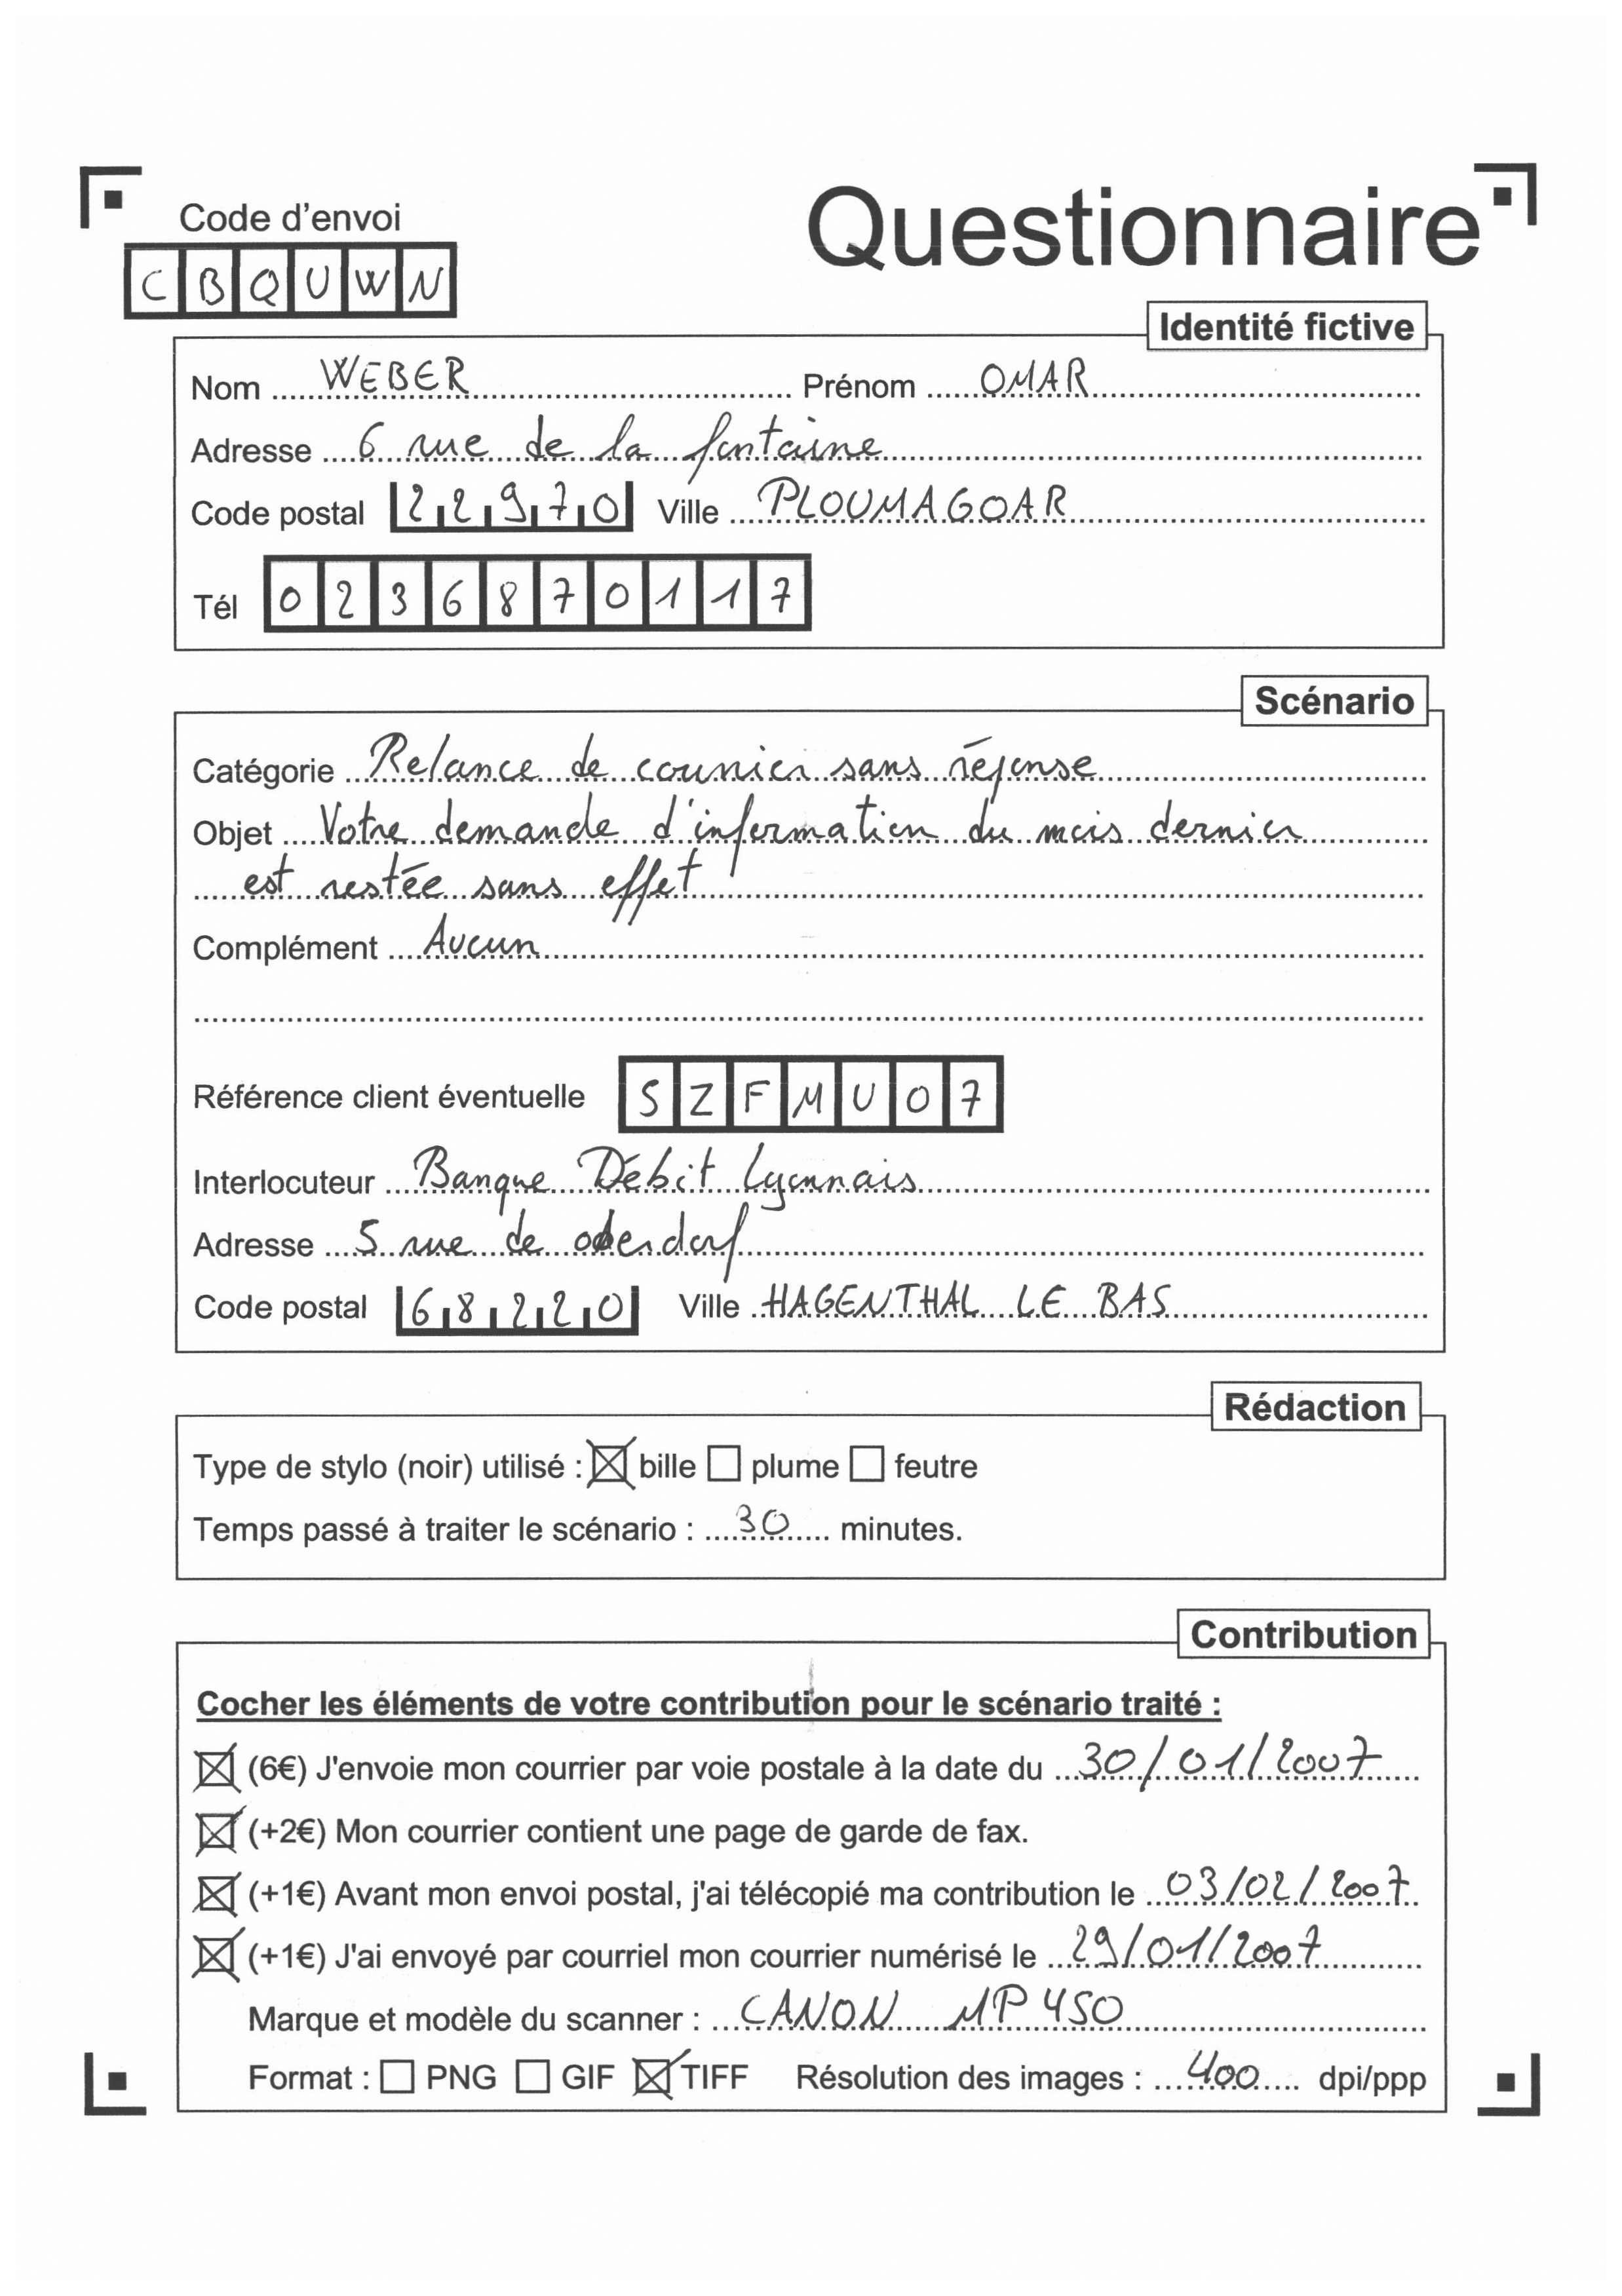 Code d'envoi
Questionnaire
C B Q U W N
Identité fictive
Nom WEBER Prénom OMAR
Adresse 6 rue de la fontaine
Code postal 22970 Ville PLOUMAGOAR
Tél 0236870117
Scénario
Catégorie Relance de courrier sans réponse
Objet Votre demande d'information du mois dernier
est restée sans effet
Complément Aucun
Référence client éventuelle SZFMU07
Interlocuteur Banque Débit Lyonnais
Adresse 5 rue de oberdorf
Code postal 68220 Ville HAGENTHAL LE BAS
Rédaction
Type de stylo (noir) utilisé : ☒ bille ☐ plume ☐ feutre
Temps passé à traiter le scénario : 30 minutes.
Contribution
Cocher les éléments de votre contribution pour le scénario traité :
☒ (6€) J'envoie mon courrier par voie postale à la date du 30/01/2007
☒ (+2€) Mon courrier contient une page de garde de fax.
☒ (+1€) Avant mon envoi postal, j'ai télécopié ma contribution le 03/02/2007
☒ (+1€) J'ai envoyé par courriel mon courrier numérisé le 29/01/2007
Marque et modèle du scanner : CANON MP450
Format : ☐ PNG ☐ GIF ☒ TIFF Résolution des images : 400 dpi/ppp